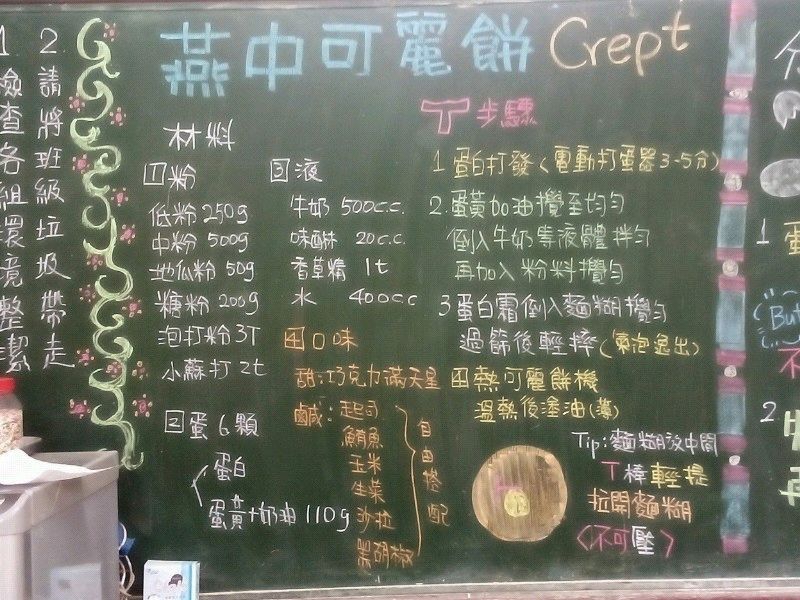 燕中可麗餅 Crept
2.請將班級垃圾帶走
1.檢查各組環境整潔
材料
①粉
低粉 250g
中粉 500g
地瓜粉 50g
糖粉 200g
泡打粉 3T
小蘇打 2t
②蛋 6顆
蛋白
蛋黃+奶油 110g
③液
牛奶 500c.c.
味醂 20c.c.
香草精 1t
水 400cc
④口味
甜:巧克力滿天星
鹹:起司
鮪魚
玉米
生菜
沙拉
黑胡椒
自由搭配
步驟
1 蛋白打發(電動打蛋器3-5分)
2.蛋黃加油攪至均勻
倒入牛奶等液體拌勻
再加入粉料攪勻
3 蛋白霜倒入麵糊攪勻
過篩後輕摔(氣泡逸出)
④熱可麗餅機
溫熱後塗油(薄)
Tip:麵糊放中間
T棒輕提
拉開麵糊
<不可壓>
1
But
2
再